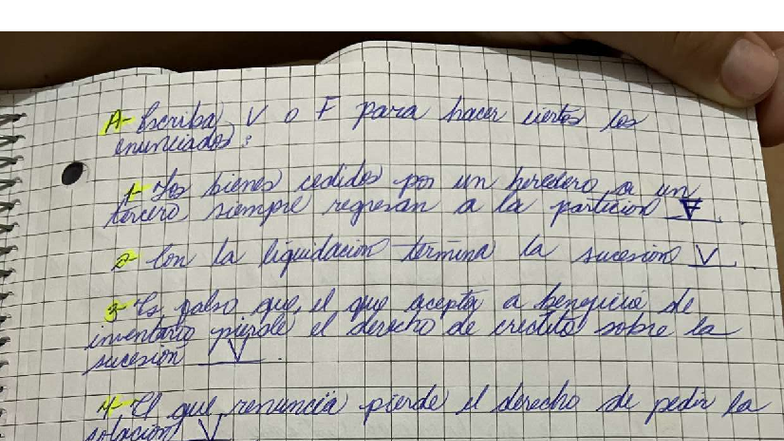 A- Escriba V o F para hacer ciertos los
enunciados:
1- Los bienes cedidos por un heredero a un
tercero siempre regresan a la particion
2- Con la liquidacion termina la sucesion V.
3- Es falso que, el que acepta a beneficio de
inventario pierde el derecho de credito sobre la
sucesion V.
4- El que renuncia pierde el derecho de pedir la
V